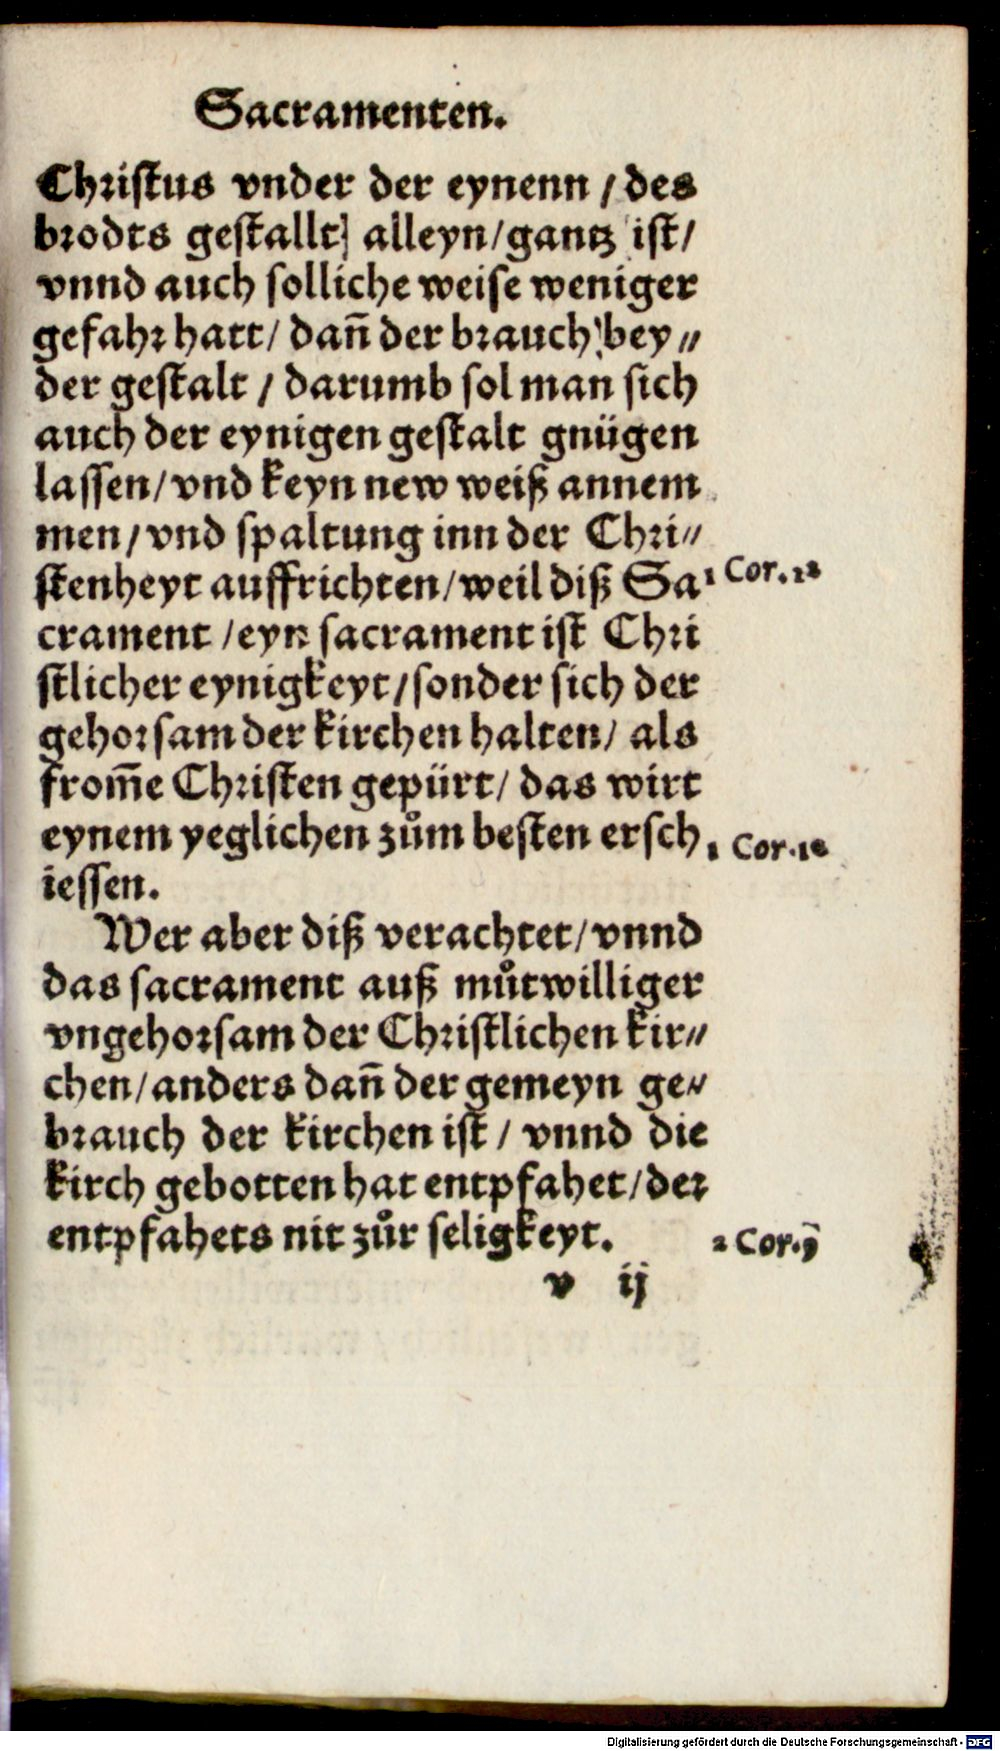 Sacramenten.
Christus vnder der eynenn / des
brodts gestallt] alleyn/gantz ist/
vnnd auch solliche weise weniger
gefahr hatt/ dañ der brauch bey⸗
der gestalt / darumb sol man sich
auch der eynigen gestalt gnügen
lassen/vnd keyn new weiß annem
men/vnd spaltung inn der Chri⸗
stenheyt auffrichten/weil diß Sa
1 Cor.
crament /eyn sacrament ist Chri
stlicher eynigkeyt/sonder sich der
gehorsam der kirchen halten/ als
from̃e Christen gepürt/ das wirt
eynem yeglichen zům besten ersch
1 Cor.
iessen.
Wer aber diß verachtet/vnnd
das sacrament auß můtwilliger
vngehorsam der Christlichen kir⸗
chen/anders dañ der gemeyn ge⸗
brauch der kirchen ist / vnnd die
kirch gebotten hat entpfahet/der
entpfahets nit zůr seligkeyt.
2 Cor.
v ij
Digitalisierung gefördert durch die Deutsche Forschungsgemeinschaft - DFG